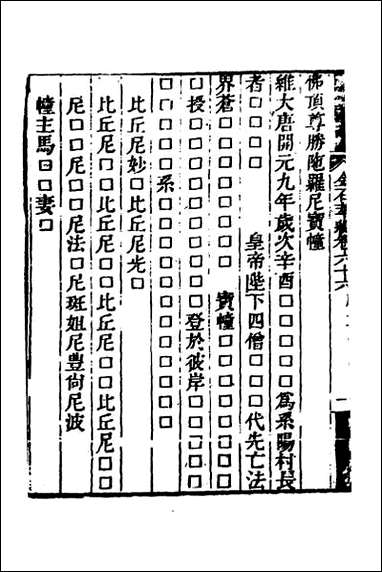 金石萃編卷六十六
佛頂尊勝陁羅尼寶幢
維大唐開元九年歲次辛酉□□□□□□爲系陽村長
者□□□□　皇帝陛下四僧□□□□代先亡法
界蒼□□□□□□□　寶幢□□□□□□□
□授□□□□□□□□□登於彼岸□□□□
□□□□□系□□□□□□□□□□□□
比丘尼妙□比丘尼光□
比丘尼□□□□比丘尼□□比丘尼□□
尼□□□□尼法□尼斑姐尼豊尙尼波
幢主馬□□妻□